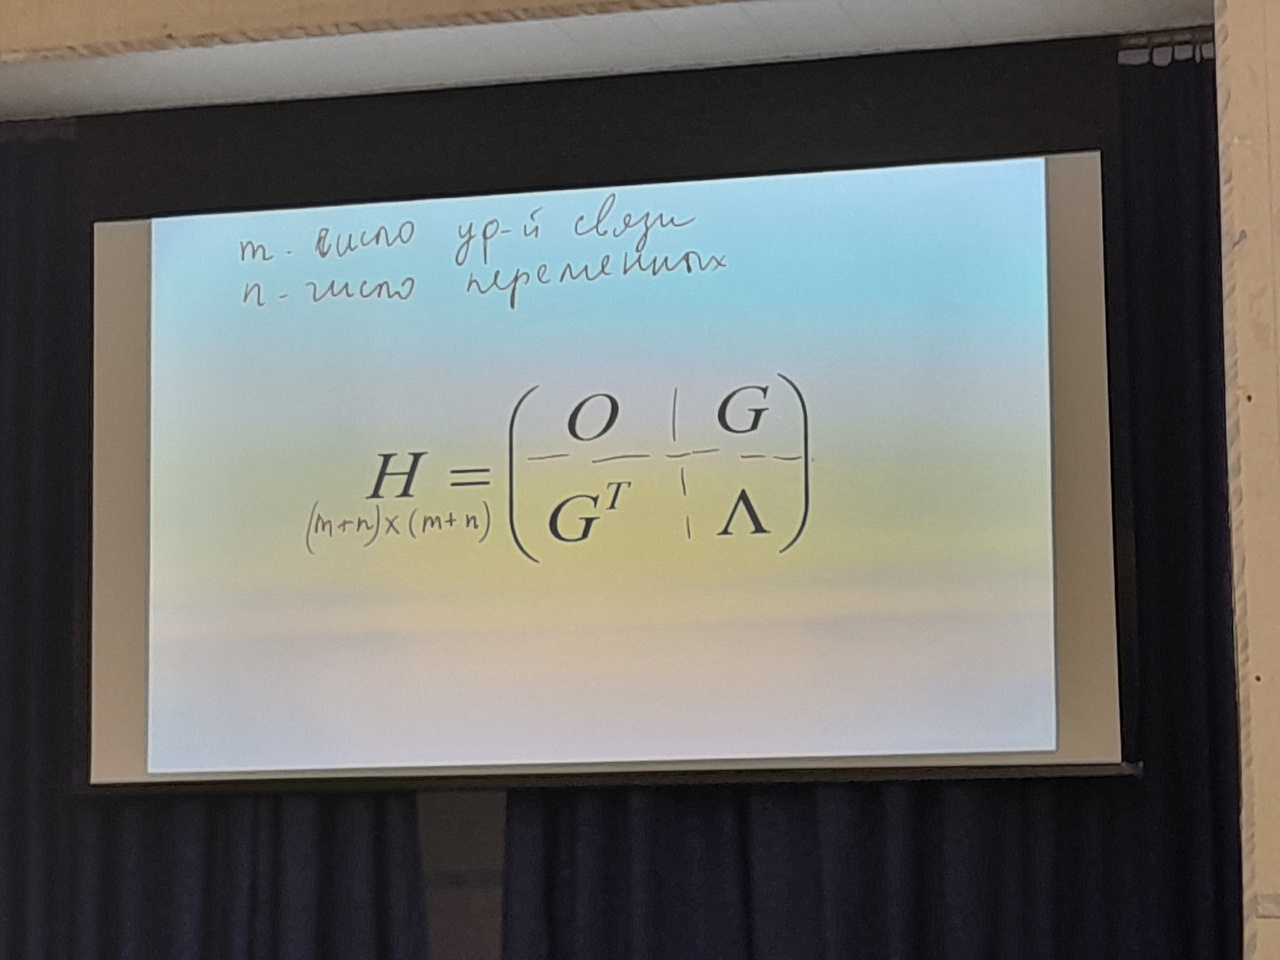 m - число ур-й связи
n - число переменных
O | G
H =
(m+n)×(m+n)
G^T | Λ